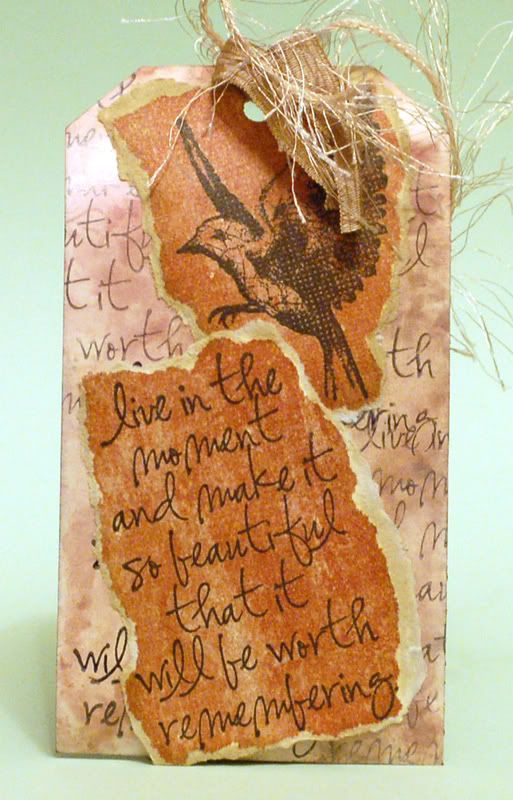 live in the
moment
and make it
so beautiful
that it
will be worth
remembering.
it
worth
th
ering
live in
wil
be